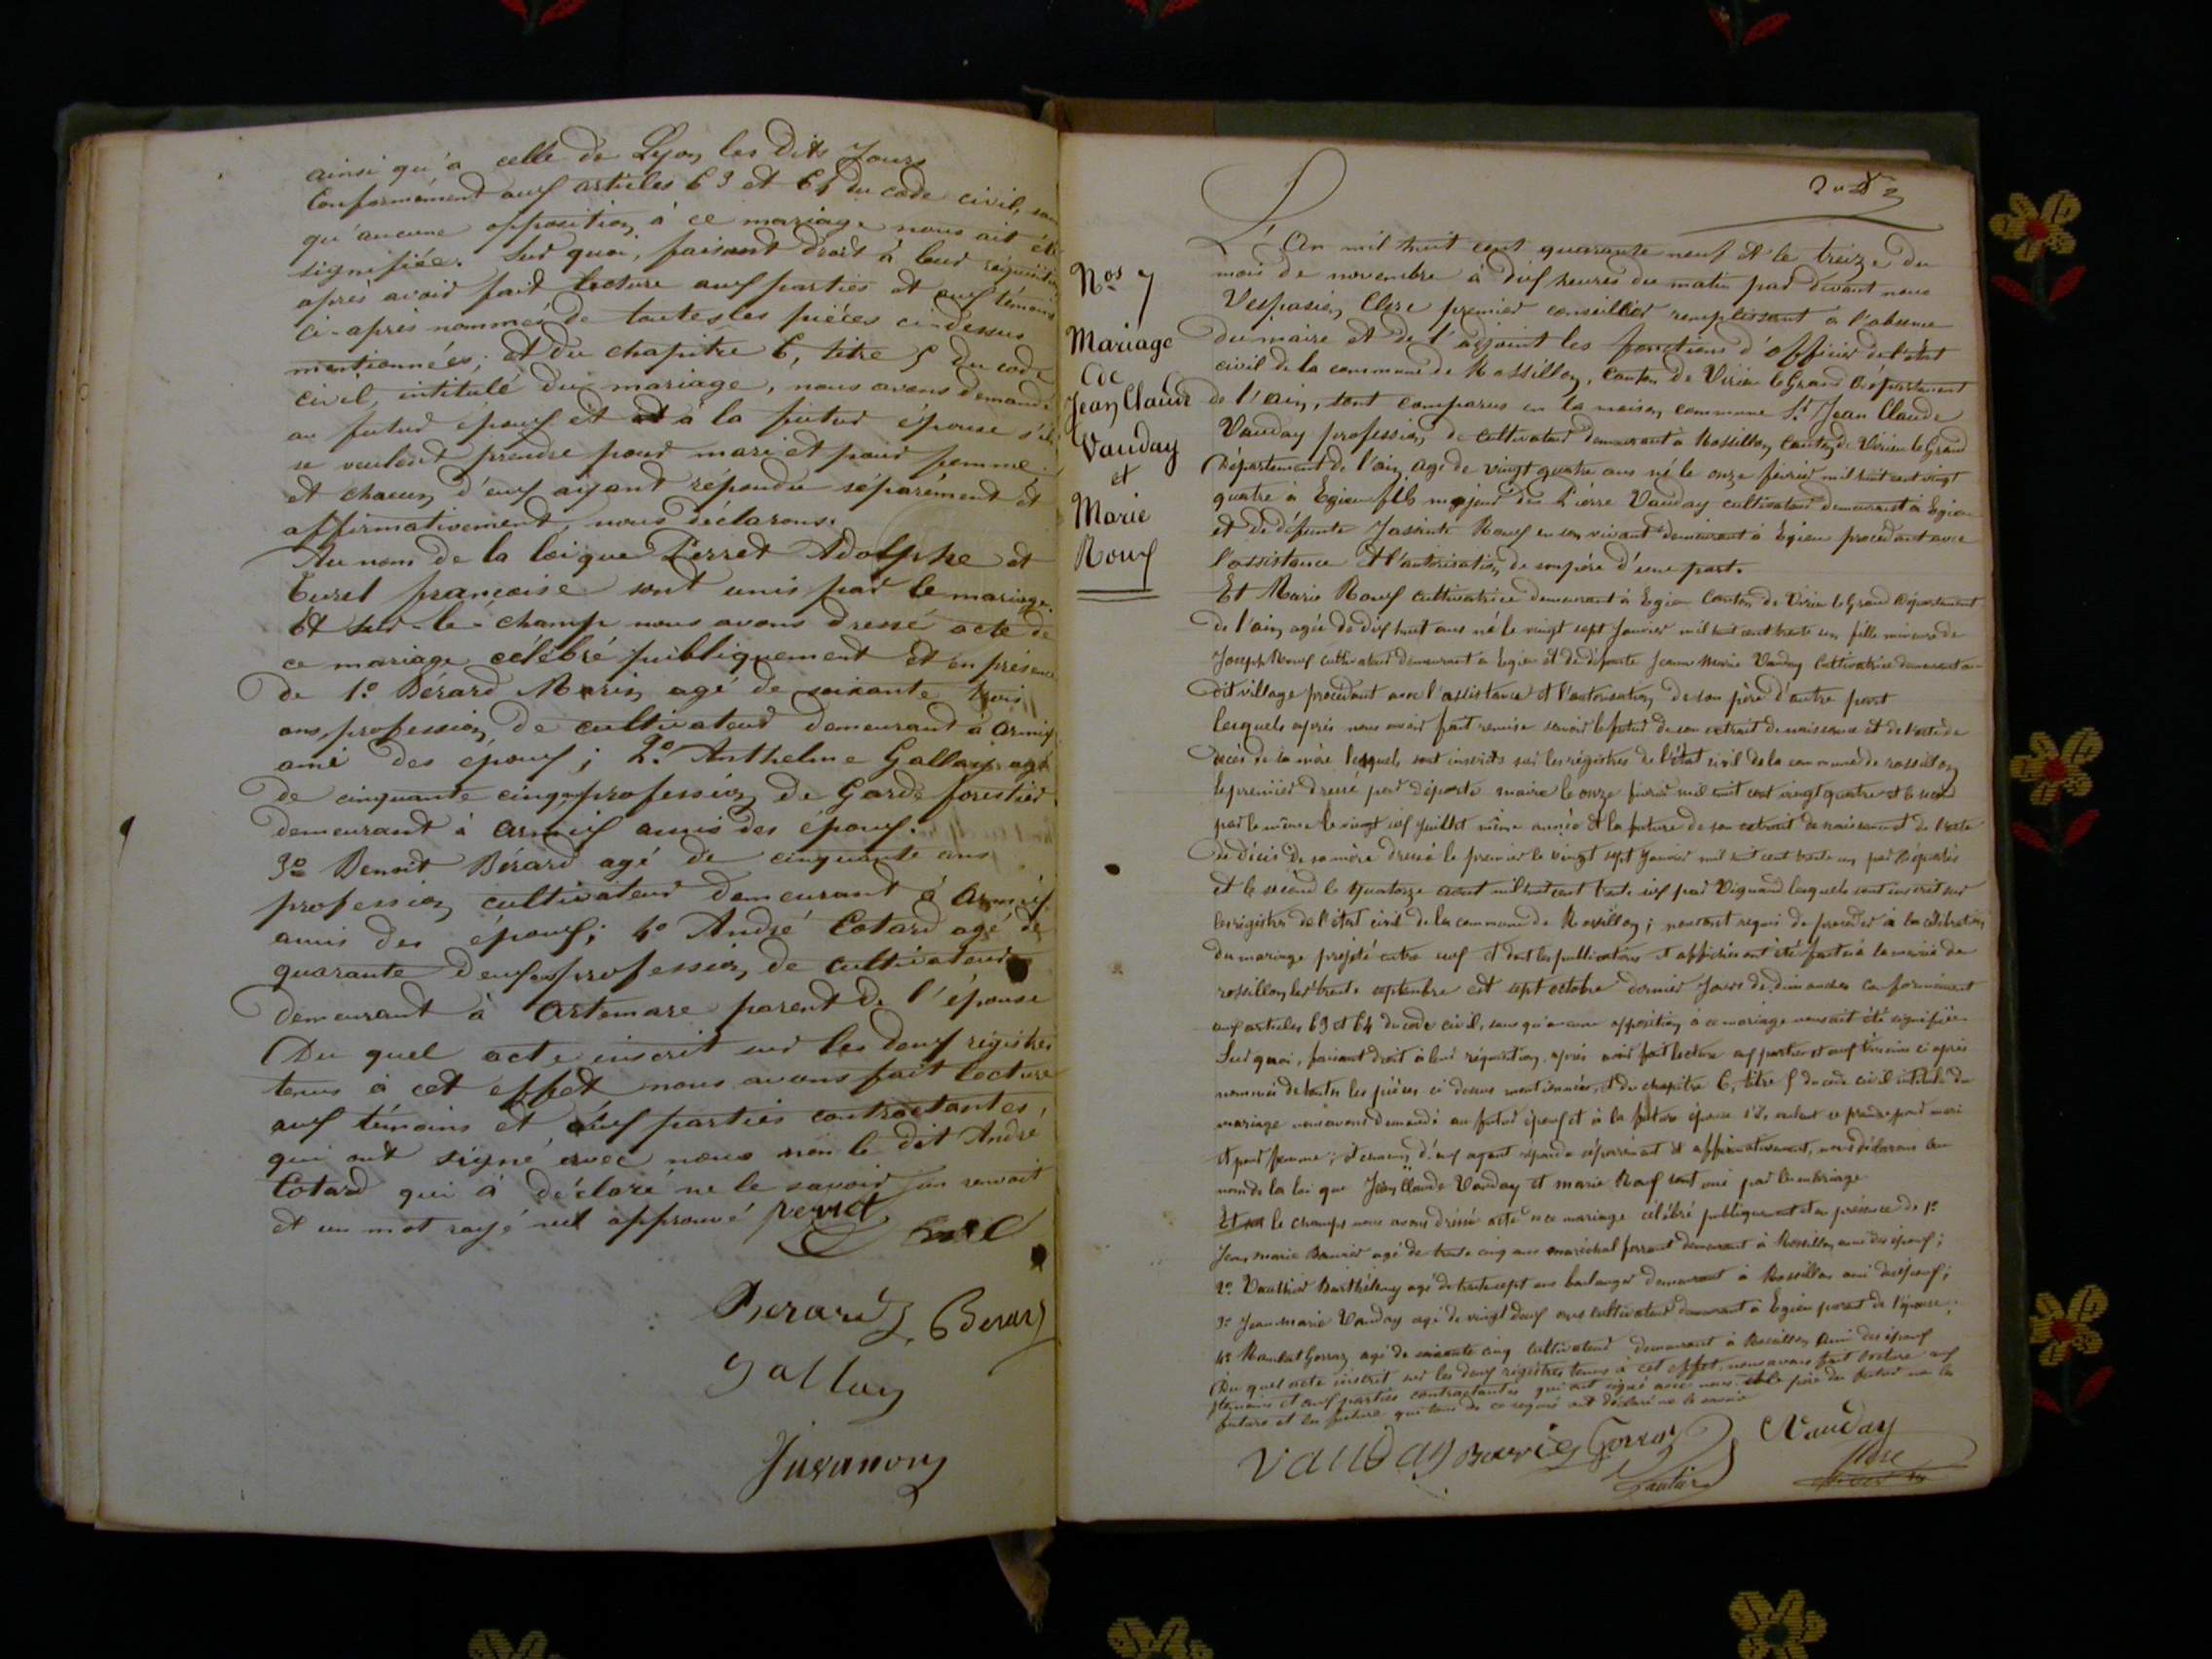 ainsi qu'a celle de Lyon les Dits Jours
Conformément aux articles 63 et 64 du code civil, sans
qu'aucune opposition à ce mariage nous ait été
signifiée. Sur quoi, faisant droit à leur réquisition
après avoir fait lecture aux parties et aux témoins
ci-après nommés de toutes les pièces ci-dessus
mentionnées; et du chapitre 6, titre 5 du code
civil, intitulé du mariage, nous avons demandé
au futur époux et à la futur épouse s'ils
se veulent prendre pour mari et pour femme
et chacun d'eux ayant répondu séparément et
affirmativement, nous déclarons.
Au nom de la loi que Perret Adolphe et
Curel françoise sont unis par le mariage.
Et sur-le-champ nous avons dressé acte de
ce mariage célébré publiquement et en présence
de 1o Bérard Marin agé de soixante trois
ans, profession de cultivateur demeurant à armix
ami des époux; 2o Anthelme Gallay agé
de cinquante cinq profession de Garde forestier
demeurant à armix amis des époux.
3o Benoit Bérard agé de cinquante ans
profession cultivateur demeurant à armix
amis des époux; 4o André Cotard agé de
quarante deux profession de cultivateur
demeurant à artemare parent de l'épouse
Du quel acte inscrit sur les deux registres
tenus à cet effet nous avons fait lecture
aux témoins et aux parties contractantes,
qui ont signé avec nous non le dit André
Cotard qui à déclaré ne le savoir un renvoit
et un mot rayé nul approuvé perret
Berard Berard
Gallay
Juvanon
Nos 7
Mariage
de
Jean Claude
Vauday
et
Marie
Roux
L'An mil huit cent quarante neuf et le treize du
mois de novembre à dix heures du matin par devant nous
Vespasien Clerc premier conseiller remplissant à l'absence
du maire et de l'adjoint les fonctions d'officier de l'état
civil de la commune de Rossillon, canton de Virieu le Grand Département
de l'ain, sont comparus en la maison commune Sr Jean Claude
Vauday profession de cultivateur demeurant à Rossillon canton de Virieu le Grand
Département de l'ain agé de vingt quatre ans né le onze février mil huit cent vingt
quatre à Egieu fils majeur de Pierre Vauday cultivateur demeurant à Egieu
et de défunte Jassinte Roux en son vivant demeurant à Egieu procédant avec
l'assistance et l'autorisation de son père d'une part.
Et Marie Roux cultivatrice demeurant à Egieu Canton de Virieu le Grand Département
de l'ain agée de dix huit ans né le vingt sept Janvier mil huit cent trente un fille mineure de
Joseph Roux cultivateur demeurant à Egieu et de défunte Jeanne Marie Vauday Cultivatrice demeurant au
dit village procédant avec l'assistance et l'autorisation de son père d'autre part
lesquels après nous avoir fait remise savoir le futur de son extrait de naissance et de l'acte de
décès de sa mère lesquels sont inscrits sur les régistres de l'état civil de la commune de rossillon
le premier dressé par Déporte maire le onze février mil huit cent vingt quatre et le second
par le même le vingt six juillet même année et la future de son extrait de naissance et de l'acte
de décès de sa mère dressé le premier le vingt sept Janvier mil huit cent trente un par Déporte
et le second le quatorze aout mil huit cent trente six par Vignand lesquels sont inscrit sur
les régistres de l'état civil de la commune de Rossillon; nous ont requis de procéder à la célébration
du mariage projeté entre eux et dont les publications et affiches ont été faites à la mairie de
rossillon les trente septembre est sept octobre dernier Jours de dimanches conformément
aux articles 63 et 64 du code civil, sans qu'aucune opposition à ce mariage nous ait été signifiée
Sur quoi, faisant droit à leur réquisition, après avoir fait lecture aux parties et aux témoins ci après
nommés de toutes les pièces ci dessus mentionnées, et du chapitre 6, titre 5 du code civil intitulé du
mariage nous avons demandé au futur époux et à la future épouse s'ils veulent se prendre pour mari
et pour femme; et chacun d'eux ayant répondu séparément et affirmativement, nous déclarons au
nom de la loi que Jean Claude Vauday et marie Roux sont unis par le mariage
Et sur le champs nous avons dressé acte de ce mariage célébré publiquement et en présence de 1o
Jean marie Bouvier agé de trente cinq ans maréchal ferrant demeurant à Rossillon ami des époux;
2o Vauthier Barthélemy agé de trente sept ans boulanger demeurant à Rossillon ami des époux;
3o Jean Marie Vauday agé de vingt deux ans cultivateur demeurant à Egieu parent de l'épouse;
4o Gorraz agé de soixante cinq cultivateur demeurant à Rossillon ami des époux
Du quel acte inscrit sur les deux régistres tenus à cet effet, nous avons fait lecture aux
témoins et aux parties contractantes qui ont signé avec nous et le père du futur non la
future et la future qui tous de ce requis ont déclaré ne le savoir
Vauday Bouvier Gorraz Vauday
Clerc